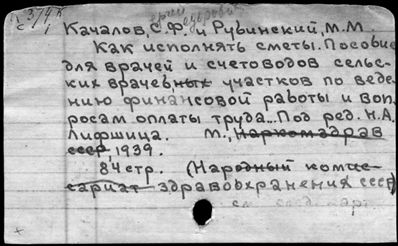 Качалов, С.Ф. и Рубинский, М.М.
Как исполнять сметы. Пособие
для врачей и счетоводов сельс-
ких врачебных участков по веде-
нию финансовой работы и воп-
росам оплаты труда... Под ред. Н.А.
Лифшица. М., Наркомздрав
ссср, 1939.
84 стр. (Народный комис-
сариат здравоохранения ссср)